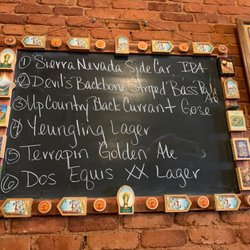 ① Sierra Nevada SideCar IPA
② Devil's Backbone Striped Bass Pale Ale
③ Up Country Black Currant Gose
④ Yeungling Lager
⑤ Terrapin Golden Ale
⑥ Dos Equis XX Lager